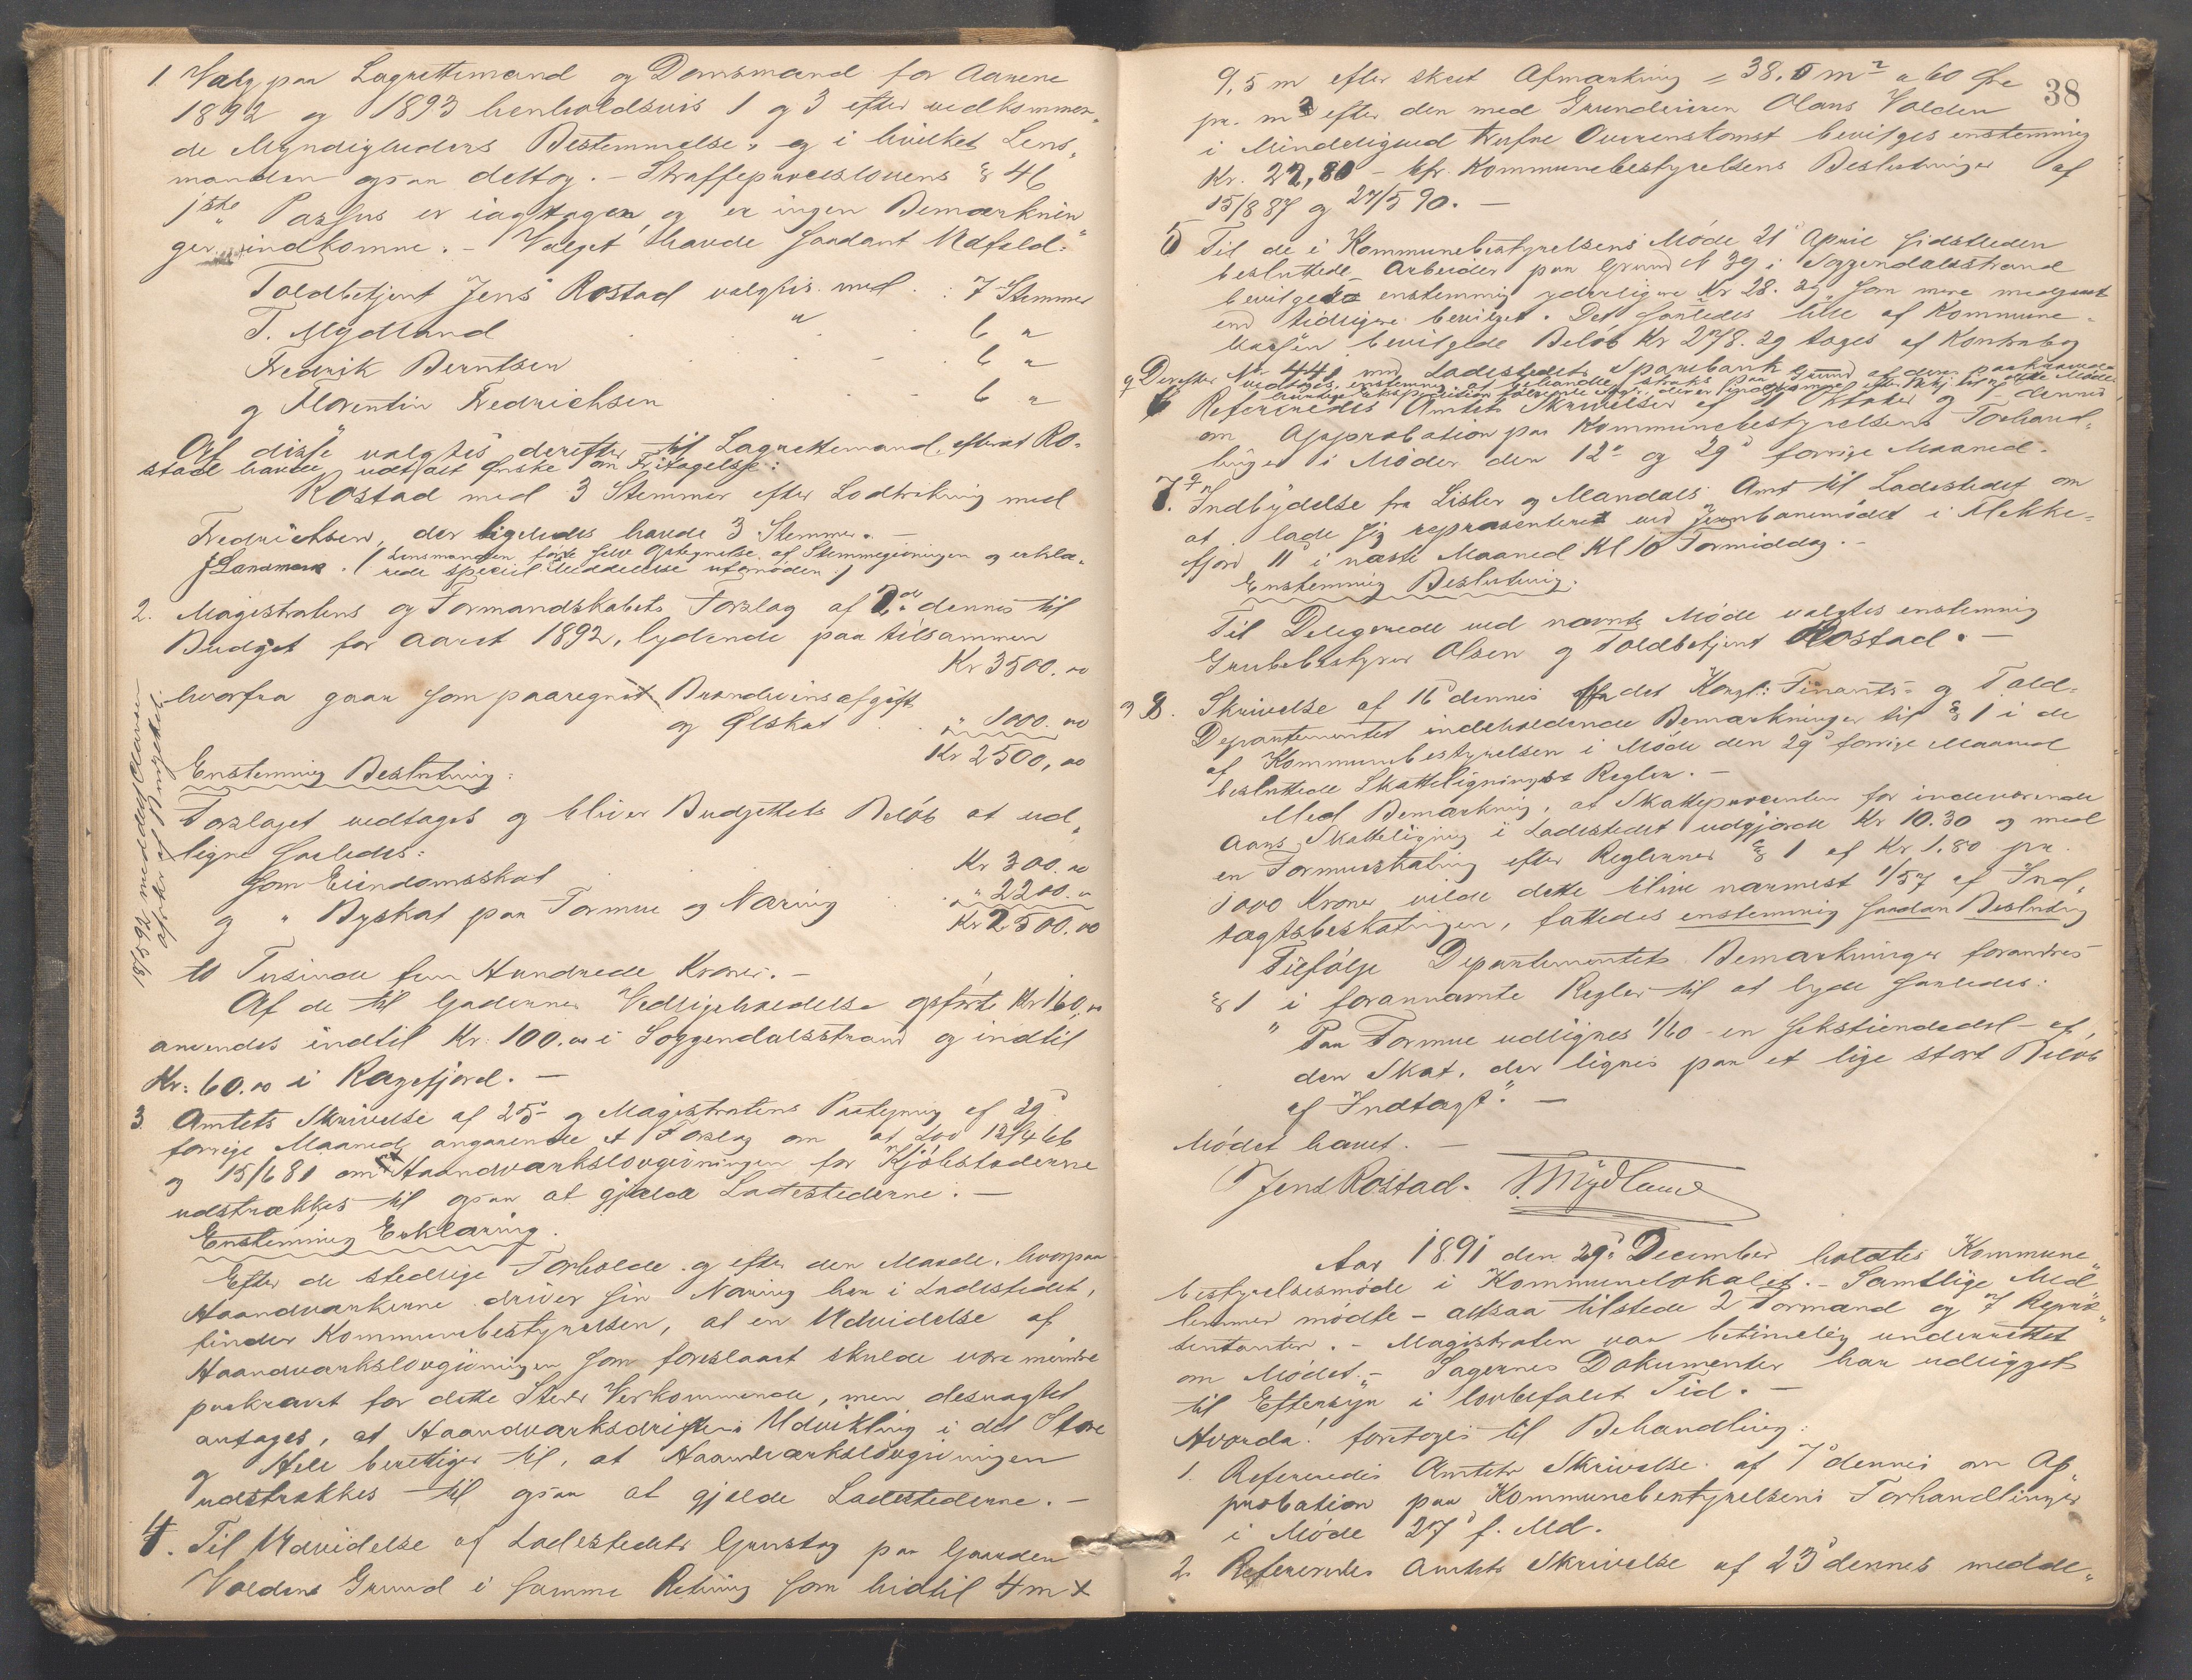 1. Valg paa Lagrettemænd og Domsmænd for Aarene
1892 og 1893 henholdsvis 1 og 3 efter vedkommen„
de Myndigheders Bestemmelse, og i hvilket Lens„
manden ogsaa deltog. – Straffeproceslovens § 46
1ste Passus er iagttagen, og er ingen Bemærknin
ger indkomne. – Valget havde saadant Udfald:
Toldbetjent Jens Rostad valgtes med . : 7 Stemmer
T. Mydland " . . 6 "
Fredrik Berntsen . . . 6 "
og Florentin Fredrichsen . . . 6 "
Af disse valgtes derefter til Lagrettemænd, efterat Ro„
stad havde udtalt Ønske om Fritagelse:
Rostad med 3 Stemmer efter Lodtrækning med
Fredrichsen, der ligeledes havde 3 Stemmer. –
Lensmanden førte selv Optegnelse af Stemmegivningen og erklæ„
rede speciel Meddelelse ufornøden.
2. Magistratens og Formandskabets Forslag af dennes til
Budget for Aaret 1892, lydende paa tilsammen
Kr 3500.00
hvorfra gaar som paaregnet Brændevinsafgift
og Ølskat . . " 1000.00
Kr 2500,00
Enstemmig Beslutning:
Forslaget vedtages og bliver Budgettets Beløb at ud„
ligne saaledes:
som Eiendomsskat . . . Kr 300.00
og " Byskat paa Formue og Næring . . " 2200.00
Kr 2500.00
to Tusinde fem Hundrede Kroner. –
Af de til Gadernes Vedligeholdelse opførte Kr 160,00
anvendes indtil Kr. 100.00 i Soggendalsstrand og indtil
Kr. 60.00 i Rægefjord. –
18/5 92 meddelt
afskr af Budgettet
3. Amtets Skrivelse af 25 og Magistratens Paategning af 29
forrige Maaned angaaende et Forslag om at Lov 12/4 66
og 15/6 81 om Haandværkslovgivningen for Kjøbstæderne
udstrækkes til ogsaa at gjælde Ladestederne. –
Enstemmig Erklæring.
Efter de stedlige Forholde og efter den Maade, hvorpaa
Haandværkerne driver sin Næring her i Ladestedet,
finder Kommunebestyrelsen, at en Udvidelse af
Haandværkslovgivningen som foreslaaet skulde være mindre
paakrævet for dette Steds Vedkommende, men desuagtet
antages, at Haandværksdriftens Udvikling i det Store
og Hele berettiger til, at Haandværkslovgivningen
udstrækkes til ogsaa at gjælde Ladestederne. –
4. Til Udvidelse af Ladestedets Grustag paa Gaarden
Voldens Grund i samme Retning som hidtil 4 m x
38
9,5 m efter skeet Afmærkning = 38,0 m2 a 60 Øre
pr. m2 efter den med Grundeieren Olaus Volden
i Mindelighed trufne Overenskomst bevilges enstemmig
Kr. 22,80 – kfr. Kommunebestyrelsens Beslutninger af
15/8 87 og 27/5 90. –
5 Til de i Kommunebestyrelsens Møde 21 April sidstleden
besluttede Arbeider paa Grund N 39 i Soggendalsstrand
bevilgedes enstemmig yderligere Kr 28.29, som mere medgaaet
end tidligere bevilget. Det saaledes ialt af Kommune„
kassen bevilgede Beløb Kr 278.29 tages af Kontrabog
No 441 med Ladestedets Sparebank
6 Refereredes Amtets Skrivelser af Oktober og dennes
om Approbation paa Kommunebestyrelsens Forhand„
linger i Møder den 12 og 29 forrige Maaned.
7. Indbydelse fra Lister og Mandals Amt til Ladestedet om
at lade sig repræsenteret ved Jernbanemødet i Flekke„
fjord 11 i næste Maaned Kl 10 Formiddag. –
Enstemmig Beslutning.
Til Delegerede ved nævnte Møde valgtes enstemmig
Grubebestyrer Olsen og Toldbetjent Rostad. –
8. Skrivelse af 16 dennes fra det Kongl: Finants- og Told-
Departementet indeholdende Bemærkninger til § 1 i de
af Kommunebestyrelsen i Møde den 29 forrige Maaned
besluttede Skattelignings Regler. –
Med Bemærkning, at Skatteprocenten for indeværende
Aars Skatteligning i Ladestedet udgjorde Kr 10.30 og med
en Formueskatning efter Reglernes § 1 af Kr 1.80 pr.
1000 Kroner vilde dette blive nærmest 1/57 af Ind„
tægtsbeskatningen, fattedes enstemmig saadan Beslutning
Tilfølge Departementets Bemærkninger forandres
§ 1 i forannævnte Regler til at lyde saaledes:
" Paa Formue udlignes 1/60 – en sekstiendedel – af
den Skat, der lignes paa et lige stort Beløb
af Indtægt." –
Mødet hævet. –
Jens Rostad. T. Mydland
Aar 1891 den 29 December holdtes Kommune„
bestyrelsesmøde i Kommunelokalet. – Samtlige Med„
lemmer mødte – altsaa tilstede 2 Formænd og 7 Repræ„
sentanter. – Magistraten var betimelig underrettet
om Mødet. – Sagernes Dokumenter har udligget
til Eftersyn i lovbefalet Tid. –
Hvorda! foretoges til Behandling:
1. Refereredes Amtets Skrivelse af 7 dennes om Ap„
probation paa Kommunebestyrelsens Forhandlinger
i Møde 27 f. Md.
2. Refereredes Amtets Skrivelse af 23 dennes medde„